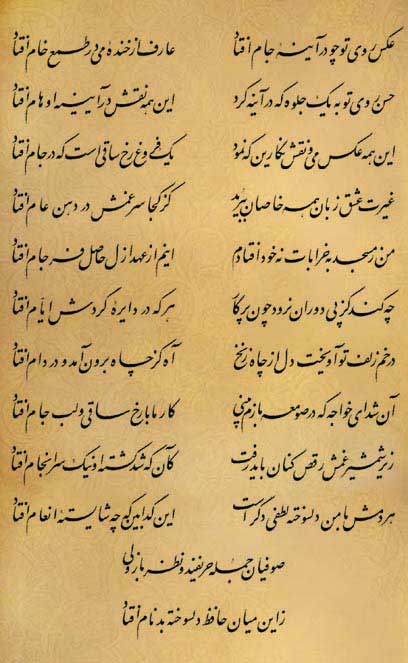 عکس روی تو چو در آینهٔ جام افتاد عارف از خندهٔ می در طمع خام افتاد
حسن روی تو به یک جلوه که در آینه کرد این همه نقش در آیینهٔ اوهام افتاد
این همه عکس می و نقش نگارین که نمود یک فروغ رخ ساقی است که در جام افتاد
غیرت عشق زبان همه خاصان ببرید کز کجا سر غمش در دهن عام افتاد
من ز مسجد به خرابات نه خود افتادم اینم از عهد ازل حاصل فرجام افتاد
چه کند کز پی دوران نرود چون پرگار هر که در دایرهٔ گردش ایام افتاد
در خم زلف تو آویخت دل از چاه زنخ آه کز چاه برون آمد و در دام افتاد
آن شد ای خواجه که در صومعه بازم بینی کار ما با رخ ساقی و لب جام افتاد
زیر شمشیر غمش رقص کنان باید رفت کان که شد کشتهٔ او نیک سرانجام افتاد
هر دمش با من دلسوخته لطفی دگر است این گدا بین که چه شایستهٔ انعام افتاد
صوفیان جمله حریفند و نظرباز ولی
زین میان حافظ دلسوخته بدنام افتاد